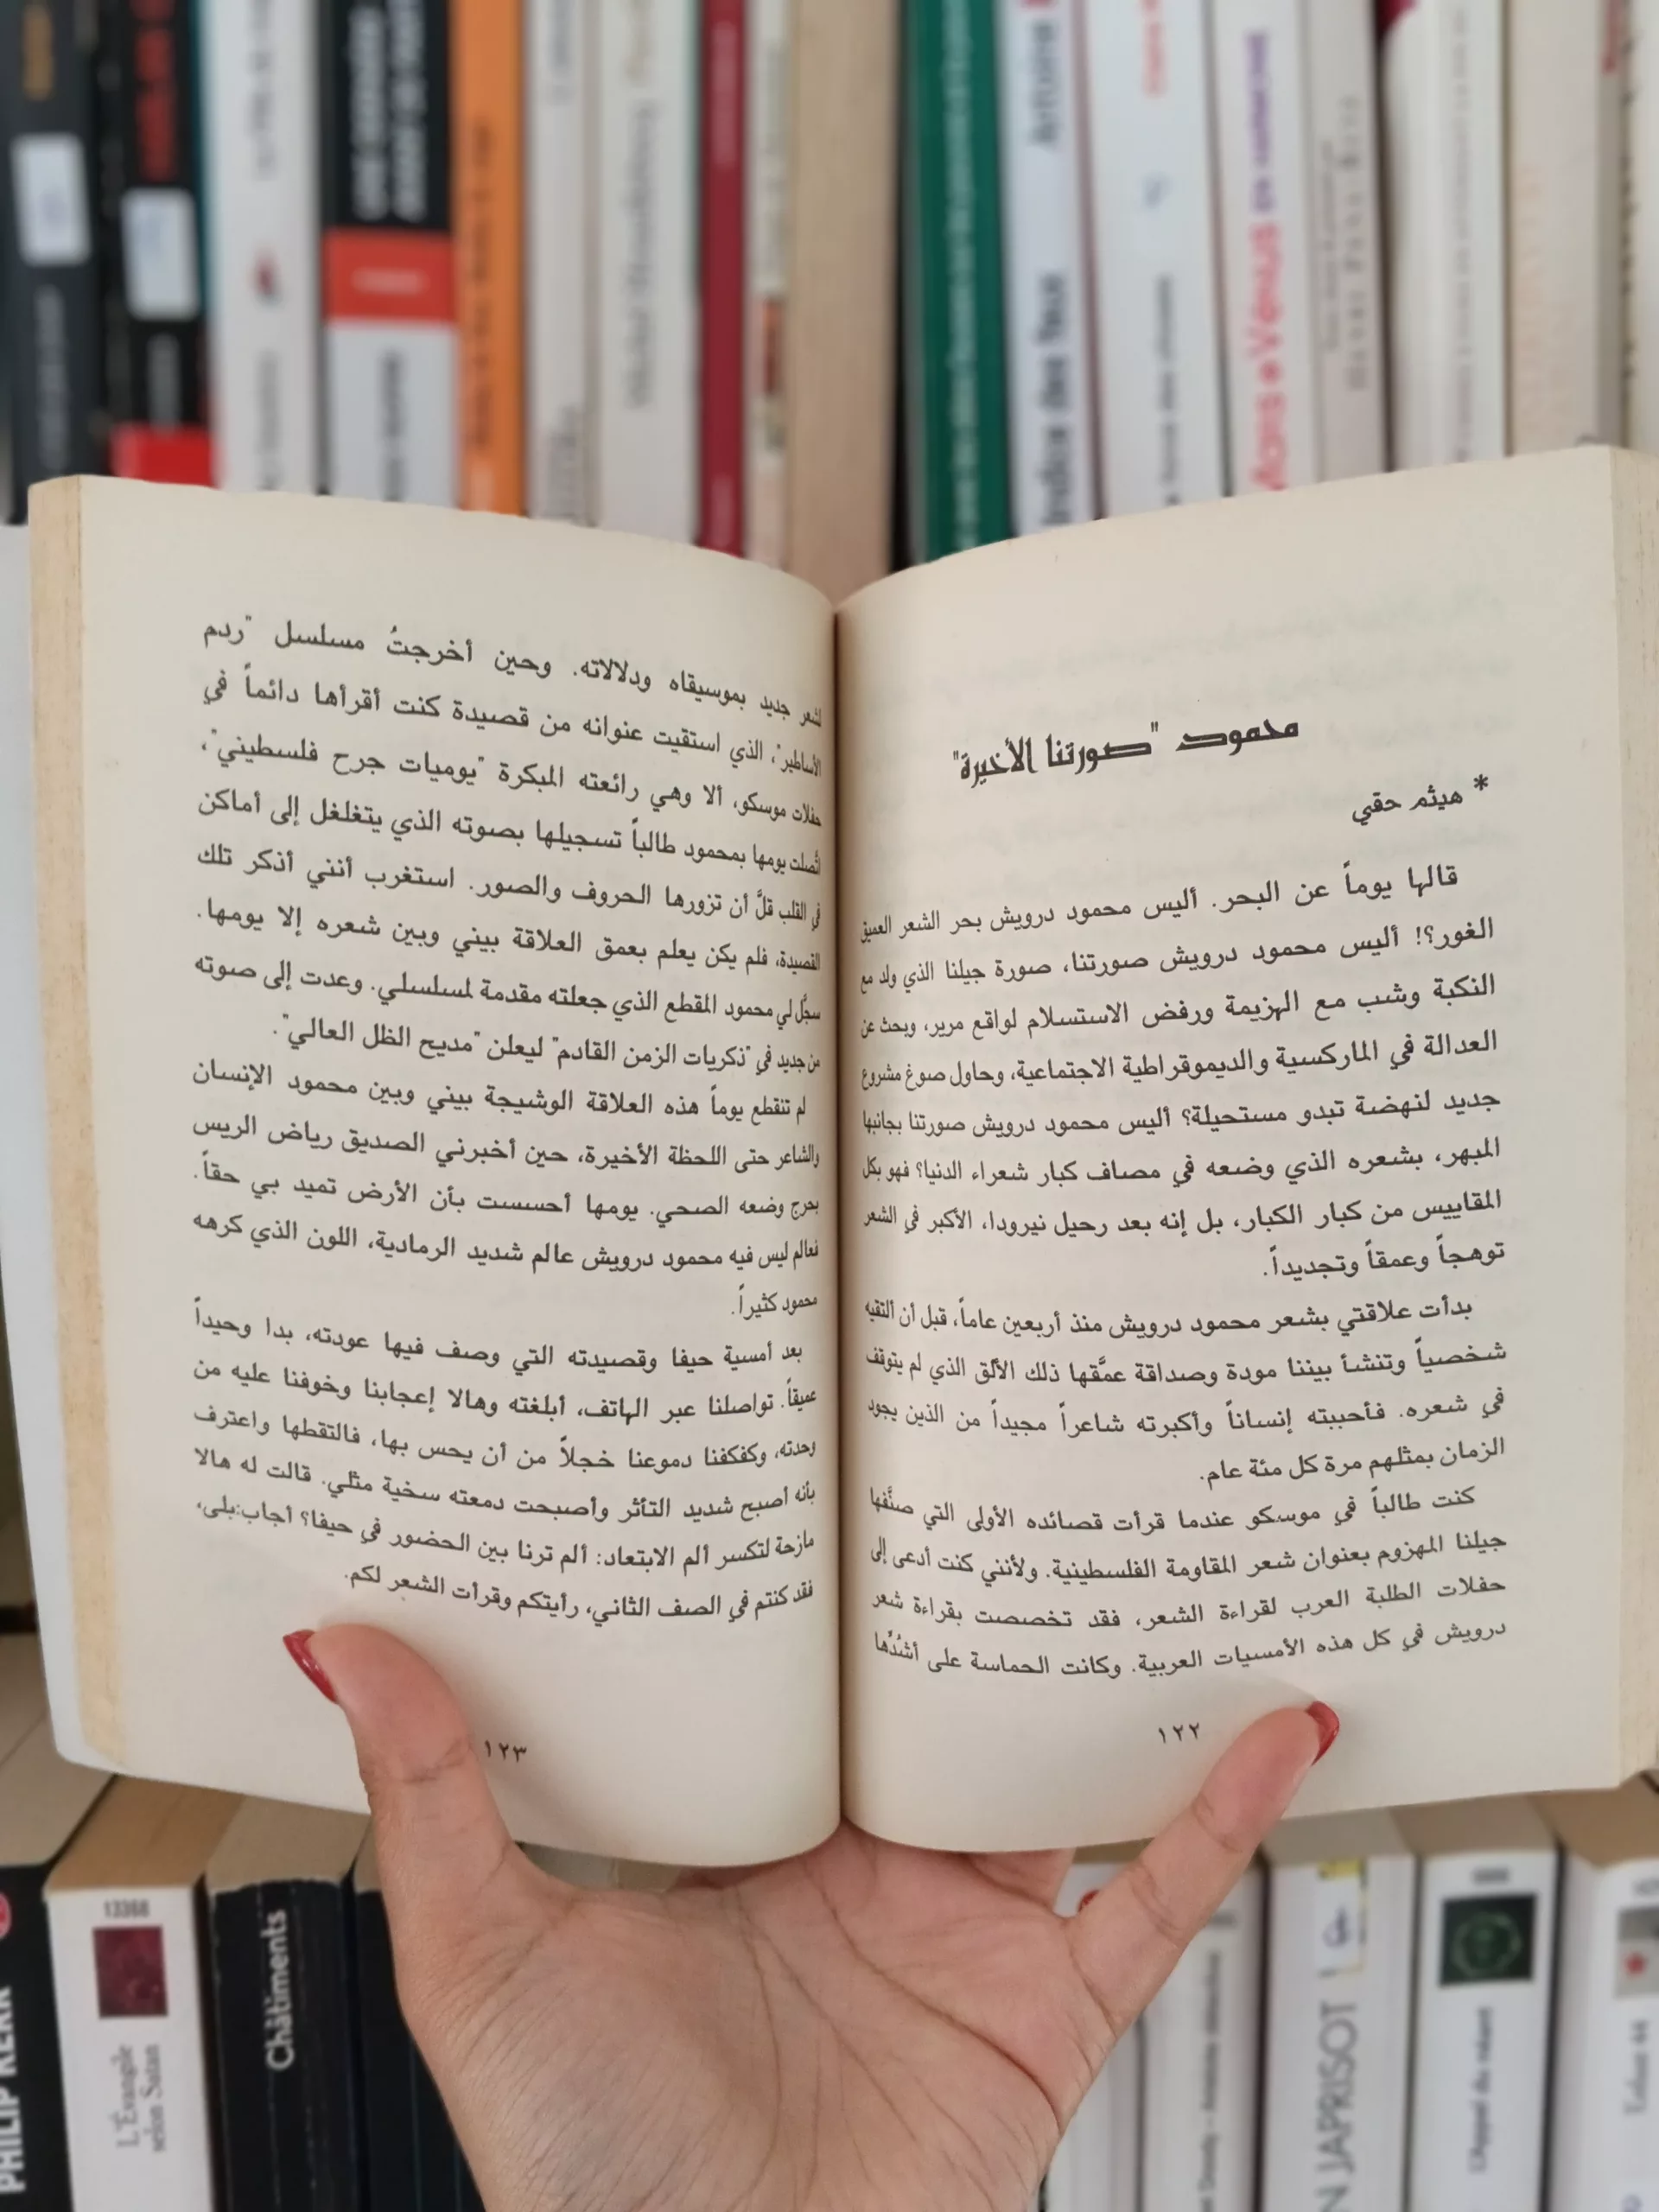 محمود "صورتنا الأخيرة"
* هيثم حقي
قالها يوماً عن البحر. أليس محمود درويش بحر الشعر العميق
الغور؟! أليس محمود درويش صورتنا، صورة جيلنا الذي ولد مع
النكبة وشب مع الهزيمة ورفض الاستسلام لواقع مرير، وبحث عن
العدالة في الماركسية والديموقراطية الاجتماعية، وحاول صوغ مشروع
جديد لنهضة تبدو مستحيلة؟ أليس محمود درويش صورتنا بجانبها
المبهر، بشعره الذي وضعه في مصاف كبار شعراء الدنيا؟ فهو بكل
المقاييس من كبار الكبار، بل إنه بعد رحيل نيرودا، الأكبر في الشعر
توهجاً وعمقاً وتجديداً.
بدأت علاقتي بشعر محمود درويش منذ أربعين عاماً، قبل أن ألتقيه
شخصياً وتنشأ بيننا مودة وصداقة عمَّقها ذلك الألق الذي لم يتوقف
في شعره. فأحببته إنساناً وأكبرته شاعراً مجيداً من الذين يجود
الزمان بمثلهم مرة كل مئة عام.
كنت طالباً في موسكو عندما قرأت قصائده الأولى التي صنَّفها
جيلنا المهزوم بعنوان شعر المقاومة الفلسطينية. ولأنني كنت أدعى إلى
حفلات الطلبة العرب لقراءة الشعر، فقد تخصصت بقراءة شعر
درويش في كل هذه الأمسيات العربية. وكانت الحماسة على أشُدِّها
١٢٢
لشعر جديد بموسيقاه ودلالاته. وحين أخرجتُ مسلسل "ردم
الأساطير"، الذي استقيت عنوانه من قصيدة كنت أقرأها دائماً في
حفلات موسكو، ألا وهي رائعته المبكرة "يوميات جرح فلسطيني"،
اتَّصلت يومها بمحمود طالباً تسجيلها بصوته الذي يتغلغل إلى أماكن
في القلب قلَّ أن تزورها الحروف والصور. استغرب أنني أذكر تلك
القصيدة، فلم يكن يعلم بعمق العلاقة بيني وبين شعره إلا يومها.
سجَّل لي محمود المقطع الذي جعلته مقدمة لمسلسلي. وعدت إلى صوته
من جديد في "ذكريات الزمن القادم" ليعلن "مديح الظل العالي".
لم تنقطع يوماً هذه العلاقة الوشيجة بيني وبين محمود الإنسان
والشاعر حتى اللحظة الأخيرة، حين أخبرني الصديق رياض الريس
بحرج وضعه الصحي. يومها أحسست بأن الأرض تميد بي حقاً.
فعالم ليس فيه محمود درويش عالم شديد الرمادية، اللون الذي كرهه
محمود كثيراً.
بعد أمسية حيفا وقصيدته التي وصف فيها عودته، بدا وحيداً
عميقاً. تواصلنا عبر الهاتف، أبلغته وهالا إعجابنا وخوفنا عليه من
وحدته، وكفكفنا دموعنا خجلاً من أن يحس بها، فالتقطها واعترف
بأنه أصبح شديد التأثر وأصبحت دمعته سخية مثلي. قالت له هالا
مازحة لتكسر ألم الابتعاد: ألم ترنا بين الحضور في حيفا؟ أجاب:بلى،
فقد كنتم في الصف الثاني، رأيتكم وقرأت الشعر لكم.
١٢٣
Antoine
Index des faux
Mars e Venus
PHILIP KERR
13368
L'Évangile
selon Satan
Châtiments
JAPRISOT
L'Appel du néant